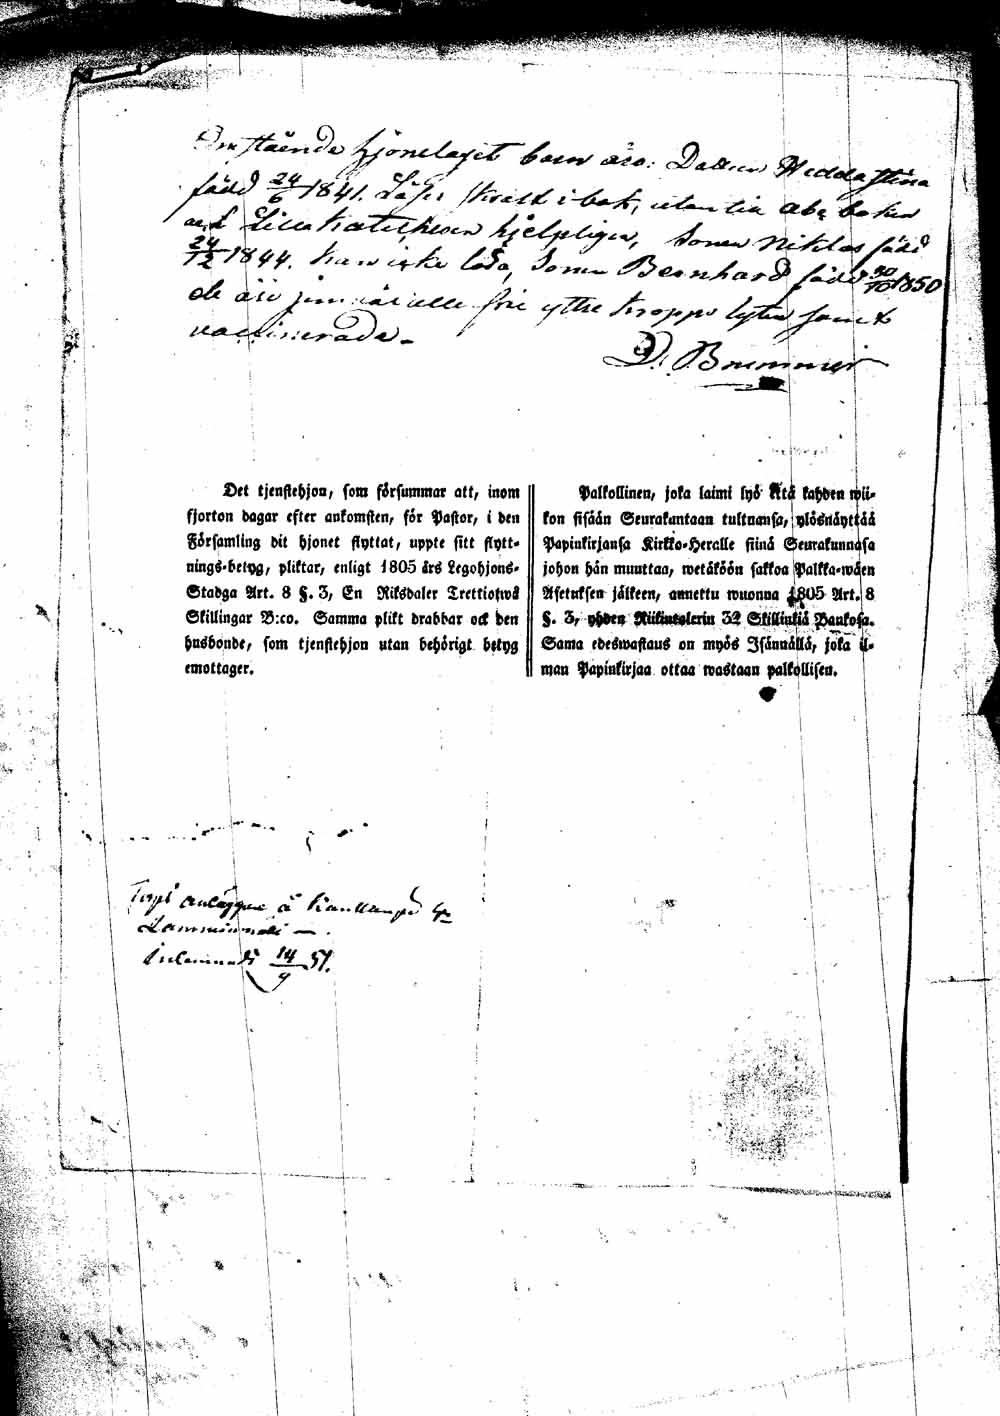 Omstående hjonelagets barn äro: Dottren Hedda Stina
född 24/6 1841. Läser svast i bok, utan till abc boken
och Lilla Katekesen hjelpligen, Sonen Niklas född
24/12 1844. Kan icke läsa, Sonen Bernhard född 30/10 1850
de äro jemväl alla frie yttre kropps lyten samt
vaccinerade.
D. Brummer
Det tjenstehjon, som försummar att, inom
fjorton dagar efter ankomsten, för Pastor, i den
Församling dit hjonet flyttat, uppte sitt flytt-
nings-betyg, pliktar, enligt 1805 års Legohjons-
Stadga Art. 8 §. 3, En Riksdaler Trettiotwå
Skillingar B:co. Samma plikt drabbar ock den
husbonde, som tjenstehjon utan behörigt betyg
emottager.
Palkollinen, joka laimi lyö että kahden wii-
kon sisään Seurakuntaan tultuansa, ylösnäyttää
Papinkirjansa Kirkko-Heralle siinä Seurakunnasa
johon hän muuttaa, wetäköön sakkoa Palkka-wäen
Asetuksen jälkeen, annettu wuonna 1805 Art. 8
§. 3, yhden Riikintalerin 32 Skillinkiä Bankosa.
Sama edeswastaus on myös Isännällä, joka il-
man Papinkirjaa ottaa wastaan palkollisen.
Torp anlägger å
Inlemnadt 14/9 51.